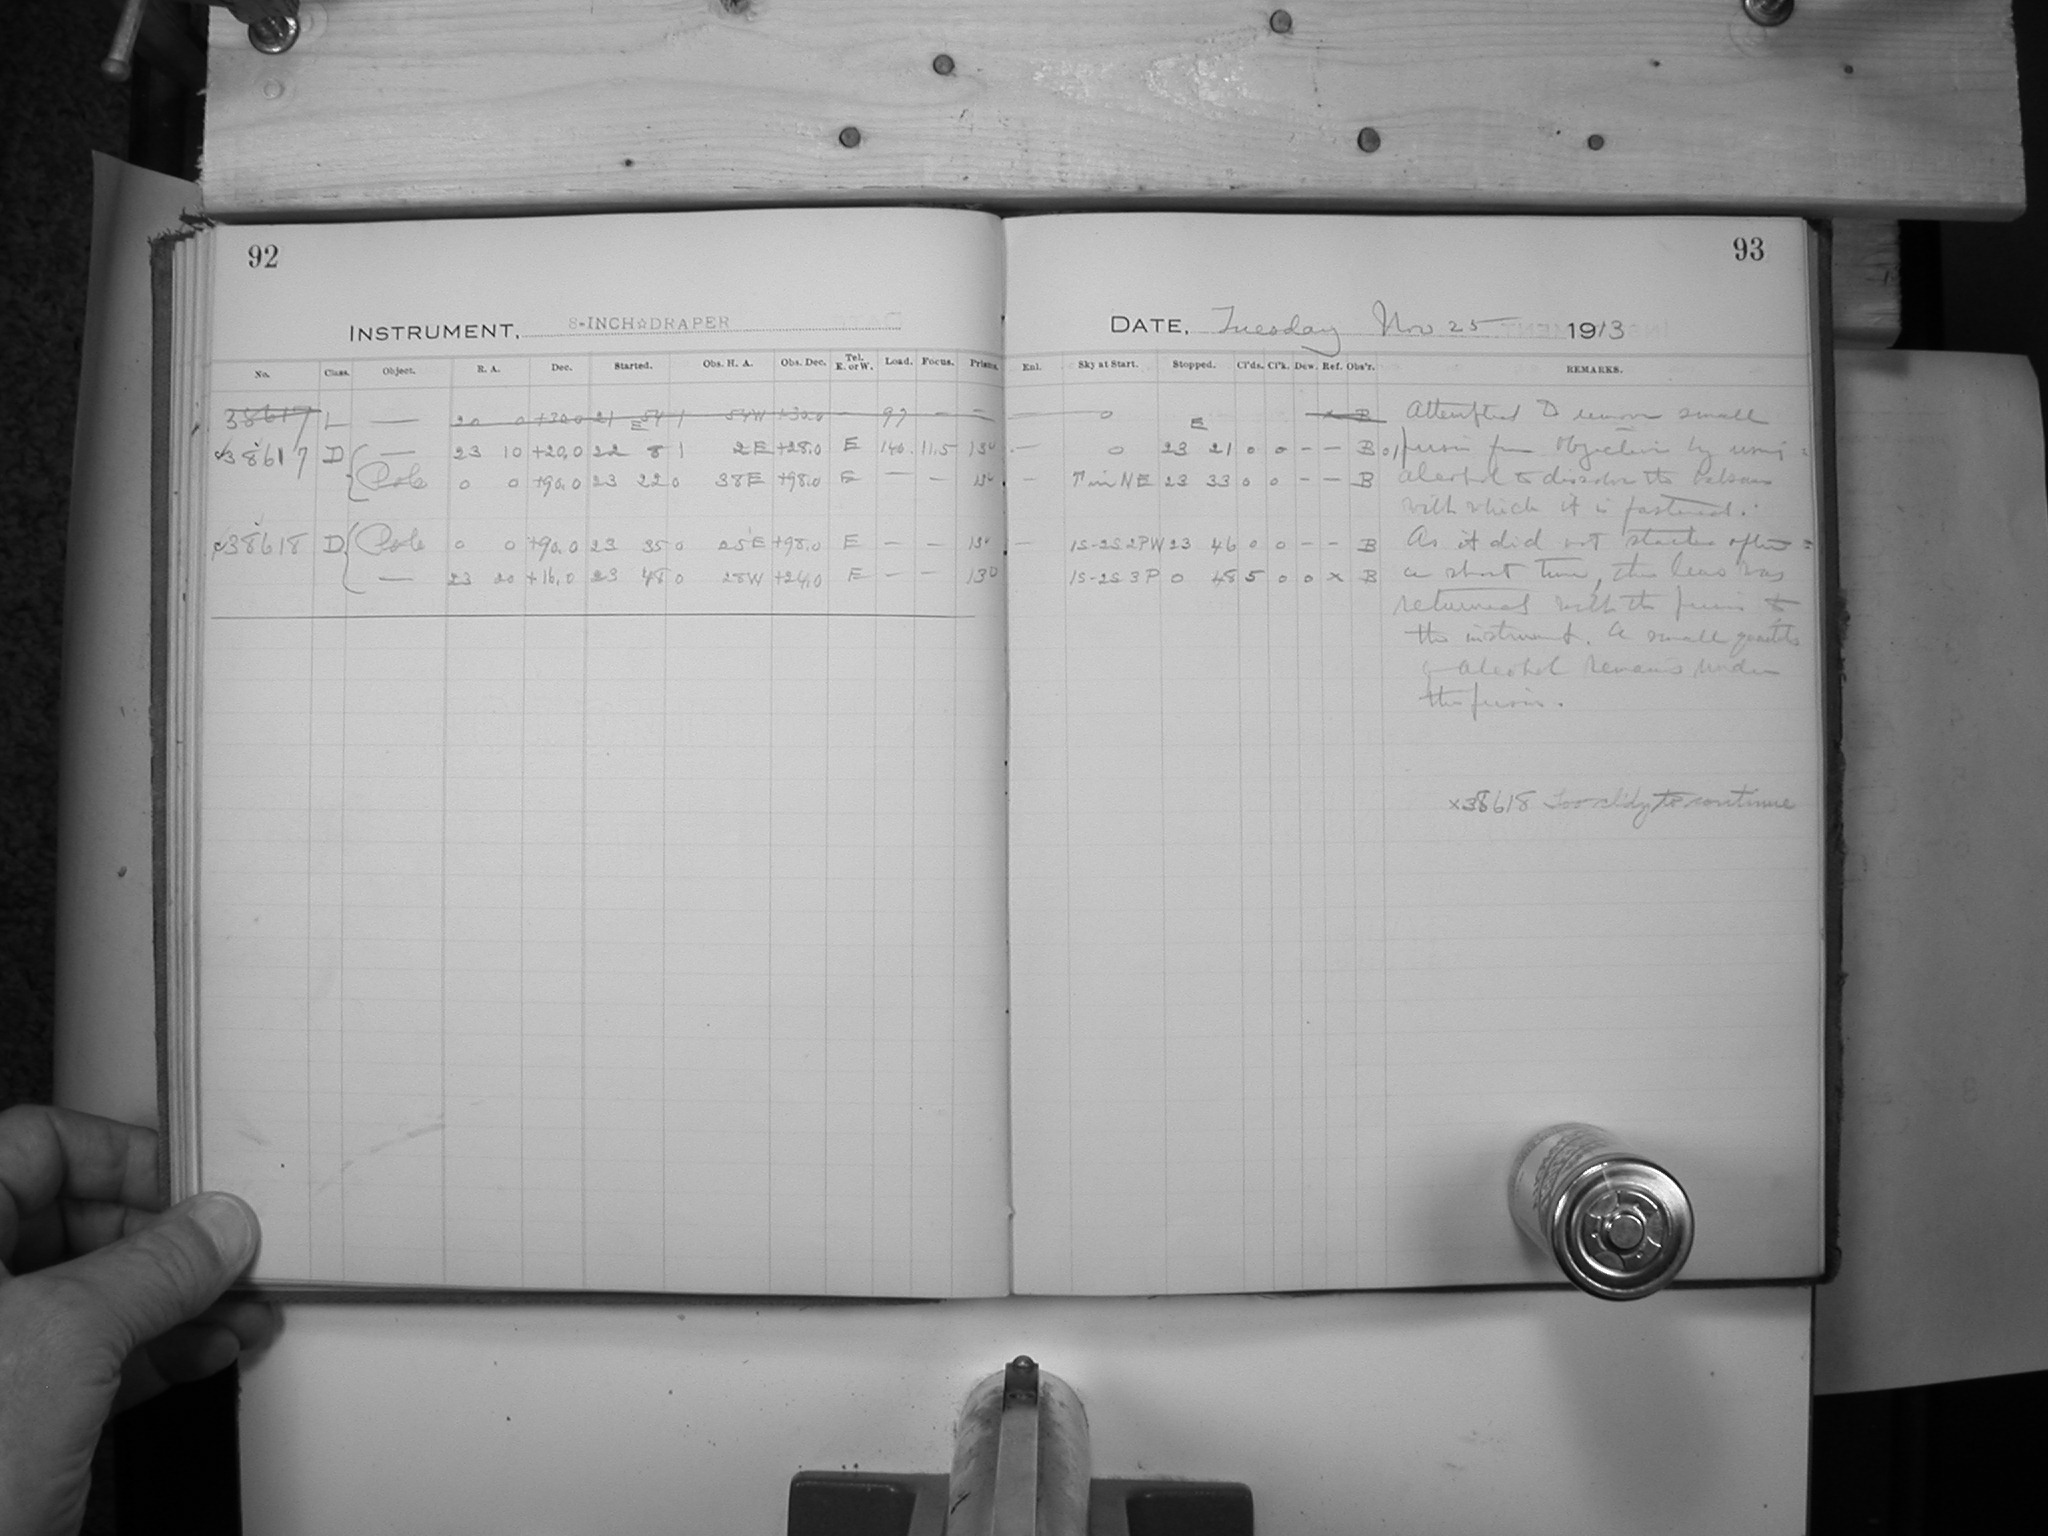 92
93
INSTRUMENT, 8-INCH☆DRAPER
DATE, Tuesday Nov 25 1913
No. Class. Object. R. A. Dec. Started. Obs. H. A. Obs. Dec. Tel. E. or W. Load. Focus. Prisms.
Enl. Sky at Start. Stopped. Cl'ds. Cl'k. Dew. Ref. Obs'r. REMARKS.
38617 L — 20 0 +30.0 21 54 1 54W +30.0 - 97 - - — 0 x B
E E
38617 D — 23 10 +20.0 22 8 1 2E +28.0 E 140. 11.5 — 0 23 21 0 0 - - B
Pole 0 0 +90.0 23 22 0 38E +98.0 E — - - in NE 23 33 0 0 - - B
38618 D Pole 0 0 +90.0 23 35 0 25E +98.0 E - - - 1S-2S 2PW 23 46 0 0 - - B
— 23 20 +16.0 23 48 0 28W +24.0 E - - 1S-2S 3P 0 48 5 0 0 x B
Attempted to remove small
prism from objective by using
alcohol to dissolve the balsam
with which it is fastened.
As it did not started after
a short time, the lens was
returned with the prism to
the instrument. A small
alcohol remains under
the prism.
x38618 Too cl'dy to continue